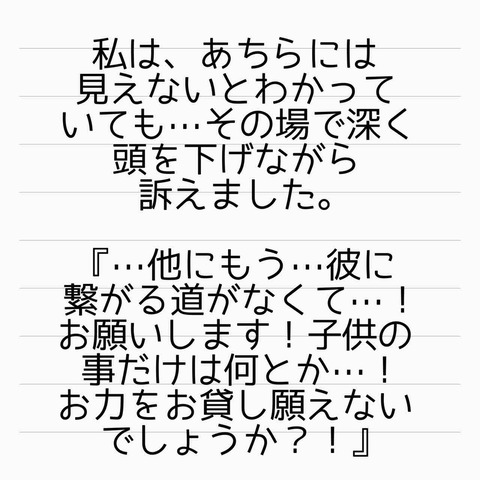 私は、あちらには
見えないとわかって
いても…その場で深く
頭を下げながら
訴えました。
『…他にもう…彼に
繋がる道がなくて…！
お願いします！子供の
事だけは何とか…！
お力をお貸し願えない
でしょうか？！』